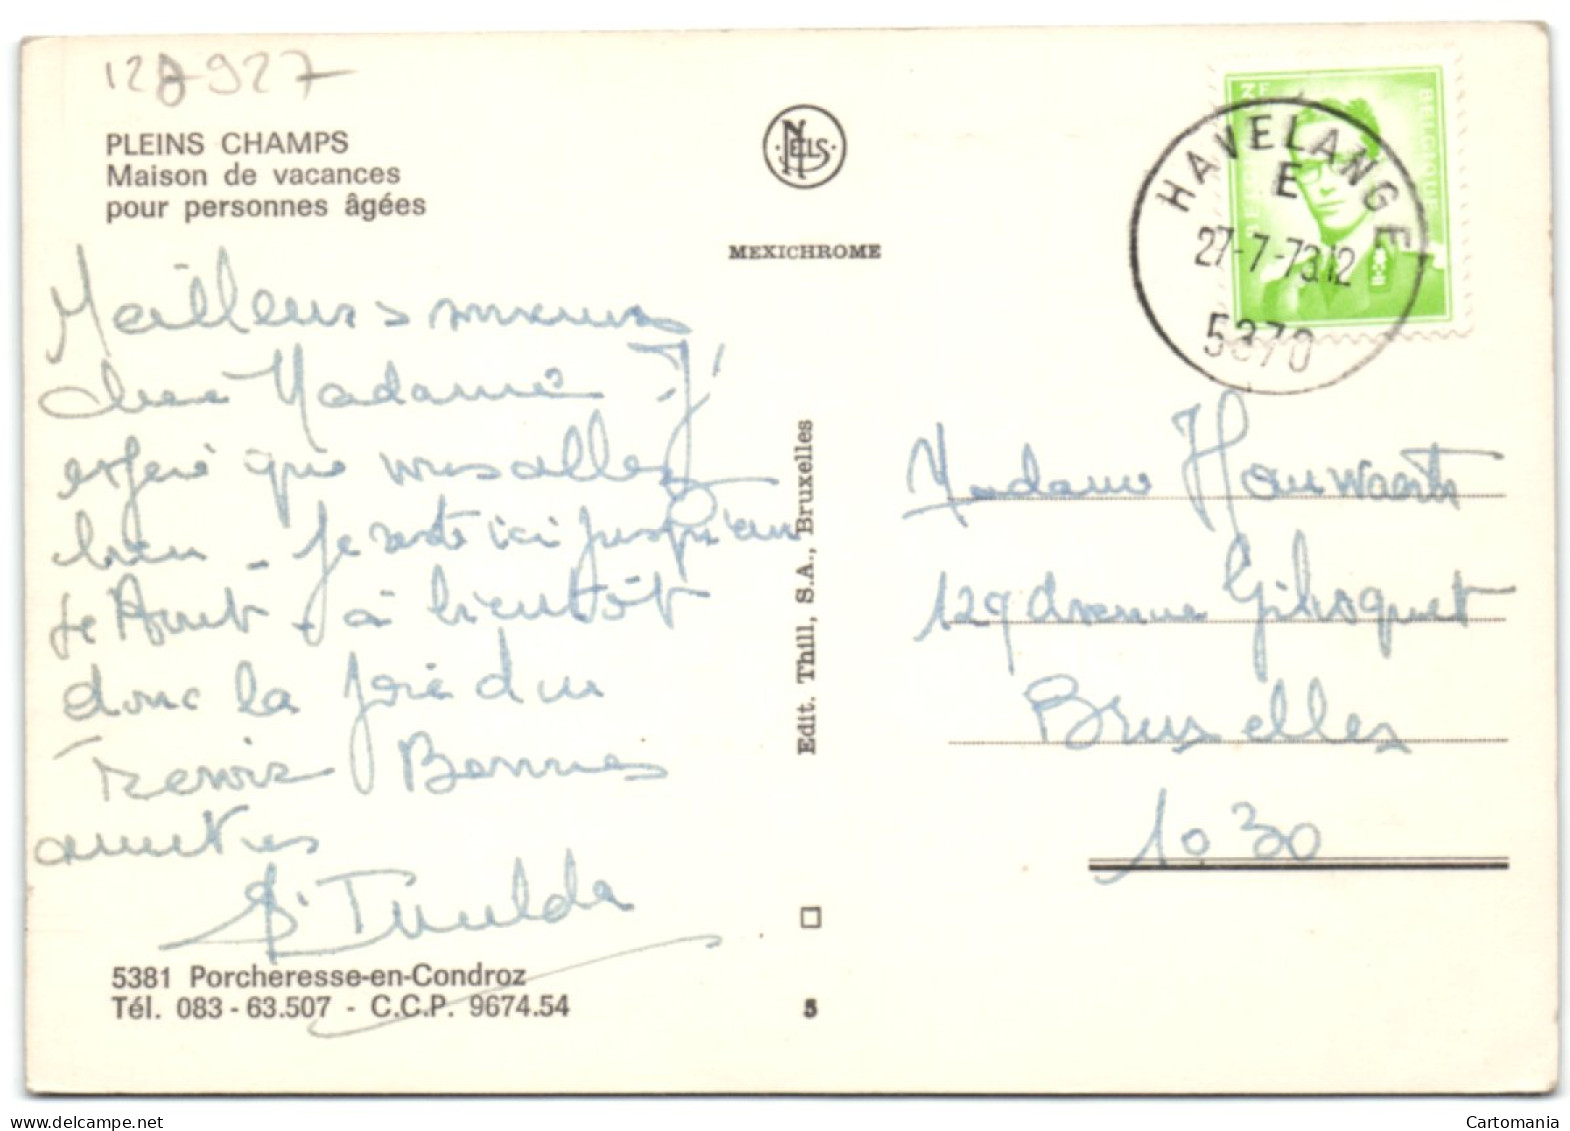 128927
PLEINS CHAMPS
Maison de vacances
pour personnes âgées
NELS
MEXICHROME
BELGIQUE
HAVELANGE
E
27-7-73.12
5370
Meilleurs
chère Madame - J'
espère que vous allez
bien - Je reste ici jusqu'au
Août - à bientôt
donc la joie du
revoir Bonnes
amitiés
5381 Porcheresse-en-Condroz
Tél. 083-63.507 - C.C.P. 9674.54
Edit. Thill, S.A., Bruxelles
5
Madame Houwaerts
129 Avenue Gilisquet
Bruxelles
1030
Cartomania